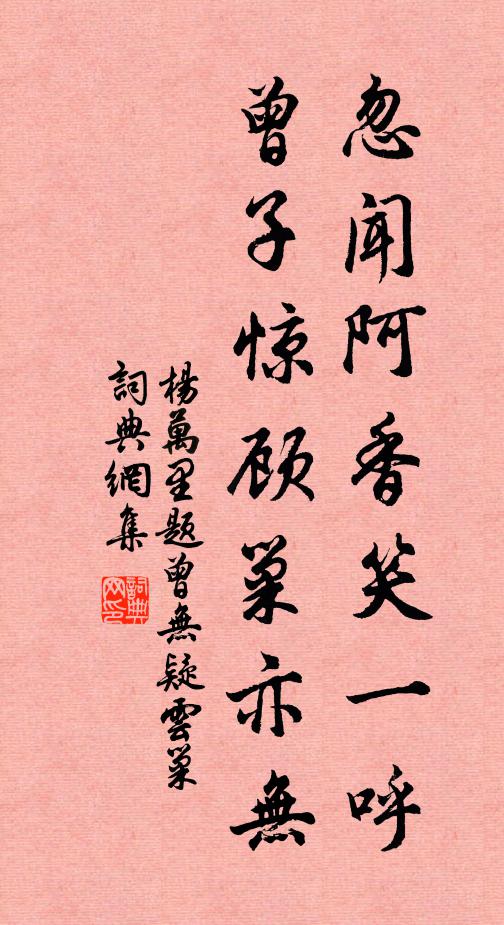 忽闻阿香笑一呼
曾子惊顾巢亦無
楊萬里题曾無疑雲巢
詞典網集
詞典
网印